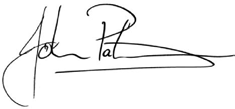 John Pat